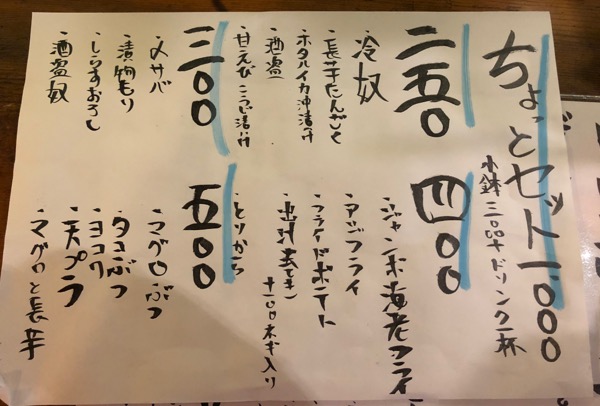 ちょっとセット一〇〇〇
小鉢三〇〇+ドリンク一杯
二五〇
・冷奴
・長芋たんざく
・ホタルイカ沖漬け
・酒盗
・甘えびこうじ漬け
三〇〇
・〆サバ
・漬物もり
・しらすおろし
・酒盗奴
四〇〇
・ジャンボ海老フライ
・アジフライ
・フライドポテト
・出汁巻き
+100ネギ入り
・とりから
五〇〇
・マグロぶつ
・タコぶつ
・ヨコワ
・天プラ
・マグロと長芋